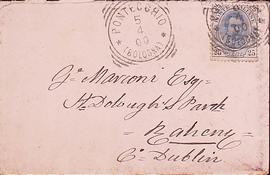 PONTECCHIO
5
4
00
* (BOLOGNA) *
25 25
Ja. Marconi Esq.
St. Doloughs Park
Raheny
Co. Dublin